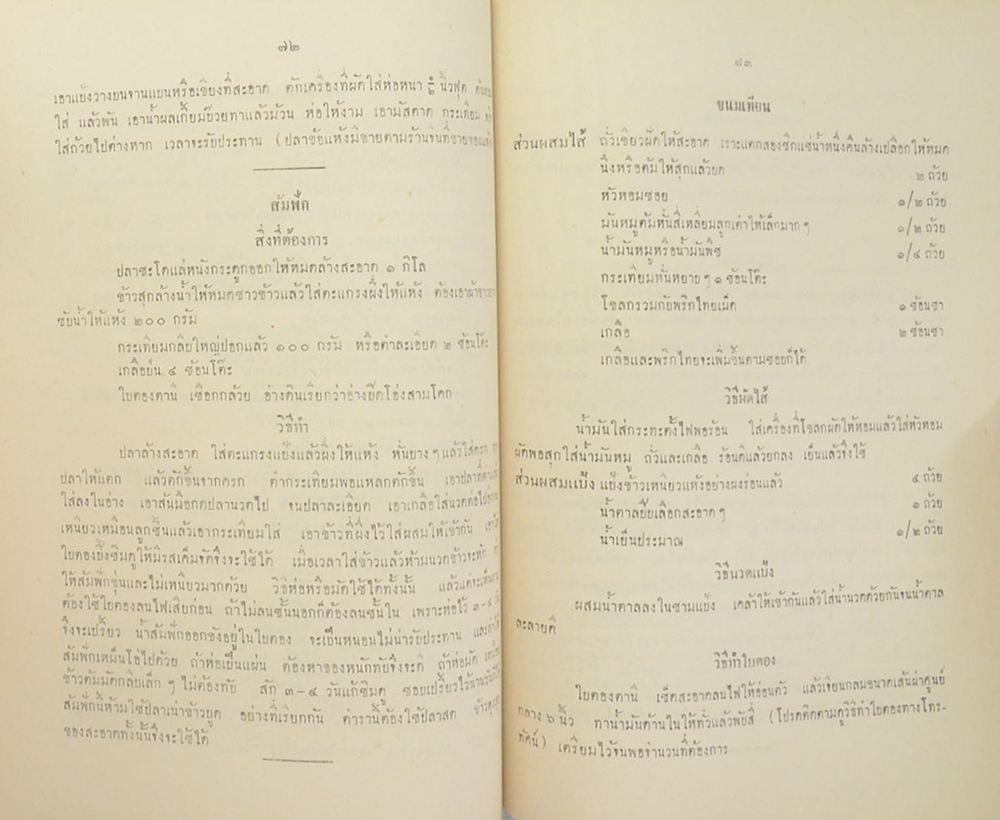 ๗๒
เอาแป้งวางบนจานแบนหรือเขียงที่สะอาด ตักเครื่องที่ผัดใส่ห่อหนา นิ้วฟุต
ใส่ แล้วพัน เอาน้ำผลเกี้ยมบ๊วยทาแล้วม้วน ห่อให้งาม เอามัสตาด กระเทียม
ใส่ถ้วยไปต่างหาก เวลาจะรับประทาน (ปลาซ่อแห้งมีขายตามร้านจีนที่ขายของแห้ง
ส้มฟัก
สิ่งที่ต้องการ
ปลาชะโดแล่หนังกระดูกออกให้หมดล้างสะอาด ๑ กิโล
ข้าวสุกล้างน้ำให้หมดซาวข้าวแล้วใส่ตะแกรงผึ่งให้แห้ง ต้องเอาผ้า
ซับน้ำให้แห้ง ๒๐๐ กรัม
กระเทียมกลีบใหญ่ปอกแล้ว ๑๐๐ กรัม หรือตำละเอียด ๒ ช้อนโต๊ะ
เกลือป่น ๔ ช้อนโต๊ะ
ใบตองตานี เชือกกล้วย อ่างดินเรียกว่าอ่างยี่ดโอ่งสามโคก
วิธีทำ
ปลาล้างสะอาด ใส่ตะแกรงแย้งแล้วผึ่งให้แห้ง หั่นบาง ๆ แล้วใส่ครก
ปลาให้แตก แล้วตักขึ้นจากครก ตำกระเทียมพอแหลกตักขึ้น เอาปลาที่
ใส่ลงในอ่าง เอาสันมือกดปลานวดไป จนปลาละเอียด เอาเกลือใส่นวดต่อไป
เหนียวเหมือนลูกชิ้นแล้วเอากระเทียมใส่ เอาข้าวที่ผึ่งไว้ใส่ผสมให้เข้ากัน
ใบตองปิ้งชิมดูให้มีรสเค็มจัดจึงจะใช้ได้ เมื่อเวลาใส่ข้าวแล้วห้ามนวดข้าวจะหัก
ให้ส้มฟักขุ่นและไม่เหนียวมากด้วย วิธีห่อหรือมัดใช้ได้ทั้งนั้น แล้วแต่จะเห็น
ต้องใช้ใบตองลนไฟเสียก่อน ถ้าไม่ลนชั้นนอกก็ต้องลนชั้นใน เพราะห่อไว้ ๓-๔
จึงจะเปรี้ยว น้ำส้มฟักออกขังอยู่ในใบตอง จะเป็นหนอนไม่น่ารับประทาน
ส้มฟักเหม็นโอ่ไปด้วย ถ้าห่อเป็นแผ่น ต้องหาของหนักทับจึงจะดี ถ้าห่อมัด
ข้าวต้มมัดกลีบเล็ก ๆ ไม่ต้องทับ สัก ๓-๔ วันแก้ชิมดู ชอบเปรี้ยวไว้นาน
ส้มฟักนี้ห้ามใช้ปลาเน่าข้าวบูด อย่างที่เรียกกัน ตำรานี้ต้องใช้ปลาสด
ของสะอาดทั้งนั้นจึงจะใช้ได้
๘๓
ขนมเทียน
ส่วนผสมไส้ ถั่วเขียวผัดให้สะอาด เราะแตกสองซีกแช่น้ำหนึ่งคืนล้างเปลือกให้หมด
นึ่งหรือต้มให้สุกแล้วบด ๒ ถ้วย
หัวหอมซอย ๑/๒ ถ้วย
มันหมูต้มหั่นสี่เหลี่ยมลูกเต๋าให้เล็กมาก ๆ ๑/๒ ถ้วย
น้ำมันหมูหรือน้ำมันพืช ๑/๔ ถ้วย
กระเทียมหั่นหยาบ ๆ ๑ ช้อนโต๊ะ
โขลกรวมกับพริกไทยเม็ด ๑ ช้อนชา
เกลือ ๒ ช้อนชา
เกลือและพริกไทยจะเพิ่มขึ้นตามชอบก็ได้
วิธีผัดไส้
น้ำมันใส่กระทะตั้งไฟพอร้อน ใส่เครื่องที่โขลกผัดให้หอมแล้วใส่หัวหอม
ผัดพอสุกใส่น้ำมันหมู ถั่วและเกลือ ร้อนดีแล้วยกลง เย็นแล้วจึงใช้
ส่วนผสมแป้ง แป้งข้าวเหนียวแห้งอย่างผงร่อนแล้ว ๔ ถ้วย
น้ำตาลปี๊บเลือกสะอาด ๆ ๑ ถ้วย
น้ำเย็นประมาณ ๑/๒ ถ้วย
วิธีนวดแป้ง
ผสมน้ำตาลลงในชามแป้ง เคล้าให้เข้ากันแล้วใส่น้ำนวดด้วยกันจนน้ำตาล
ละลายดี
วิธีทำใบตอง
ใบตองตานี เช็ดสะอาดลนไฟให้อ่อนตัว แล้วเจียนกลมขนาดเส้นผ่าศูนย์
กลาง ๖ นิ้ว ทาน้ำมันด้านในให้ทั่วแล้วพับสี่ (โปรดติดตามดูวิธีทำใบตองทางโทร-
ทัศน์) เตรียมไว้จนพอจำนวนที่ต้องการ